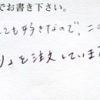 でお書き下さい。
ても好きなので、こ
」を注文しています